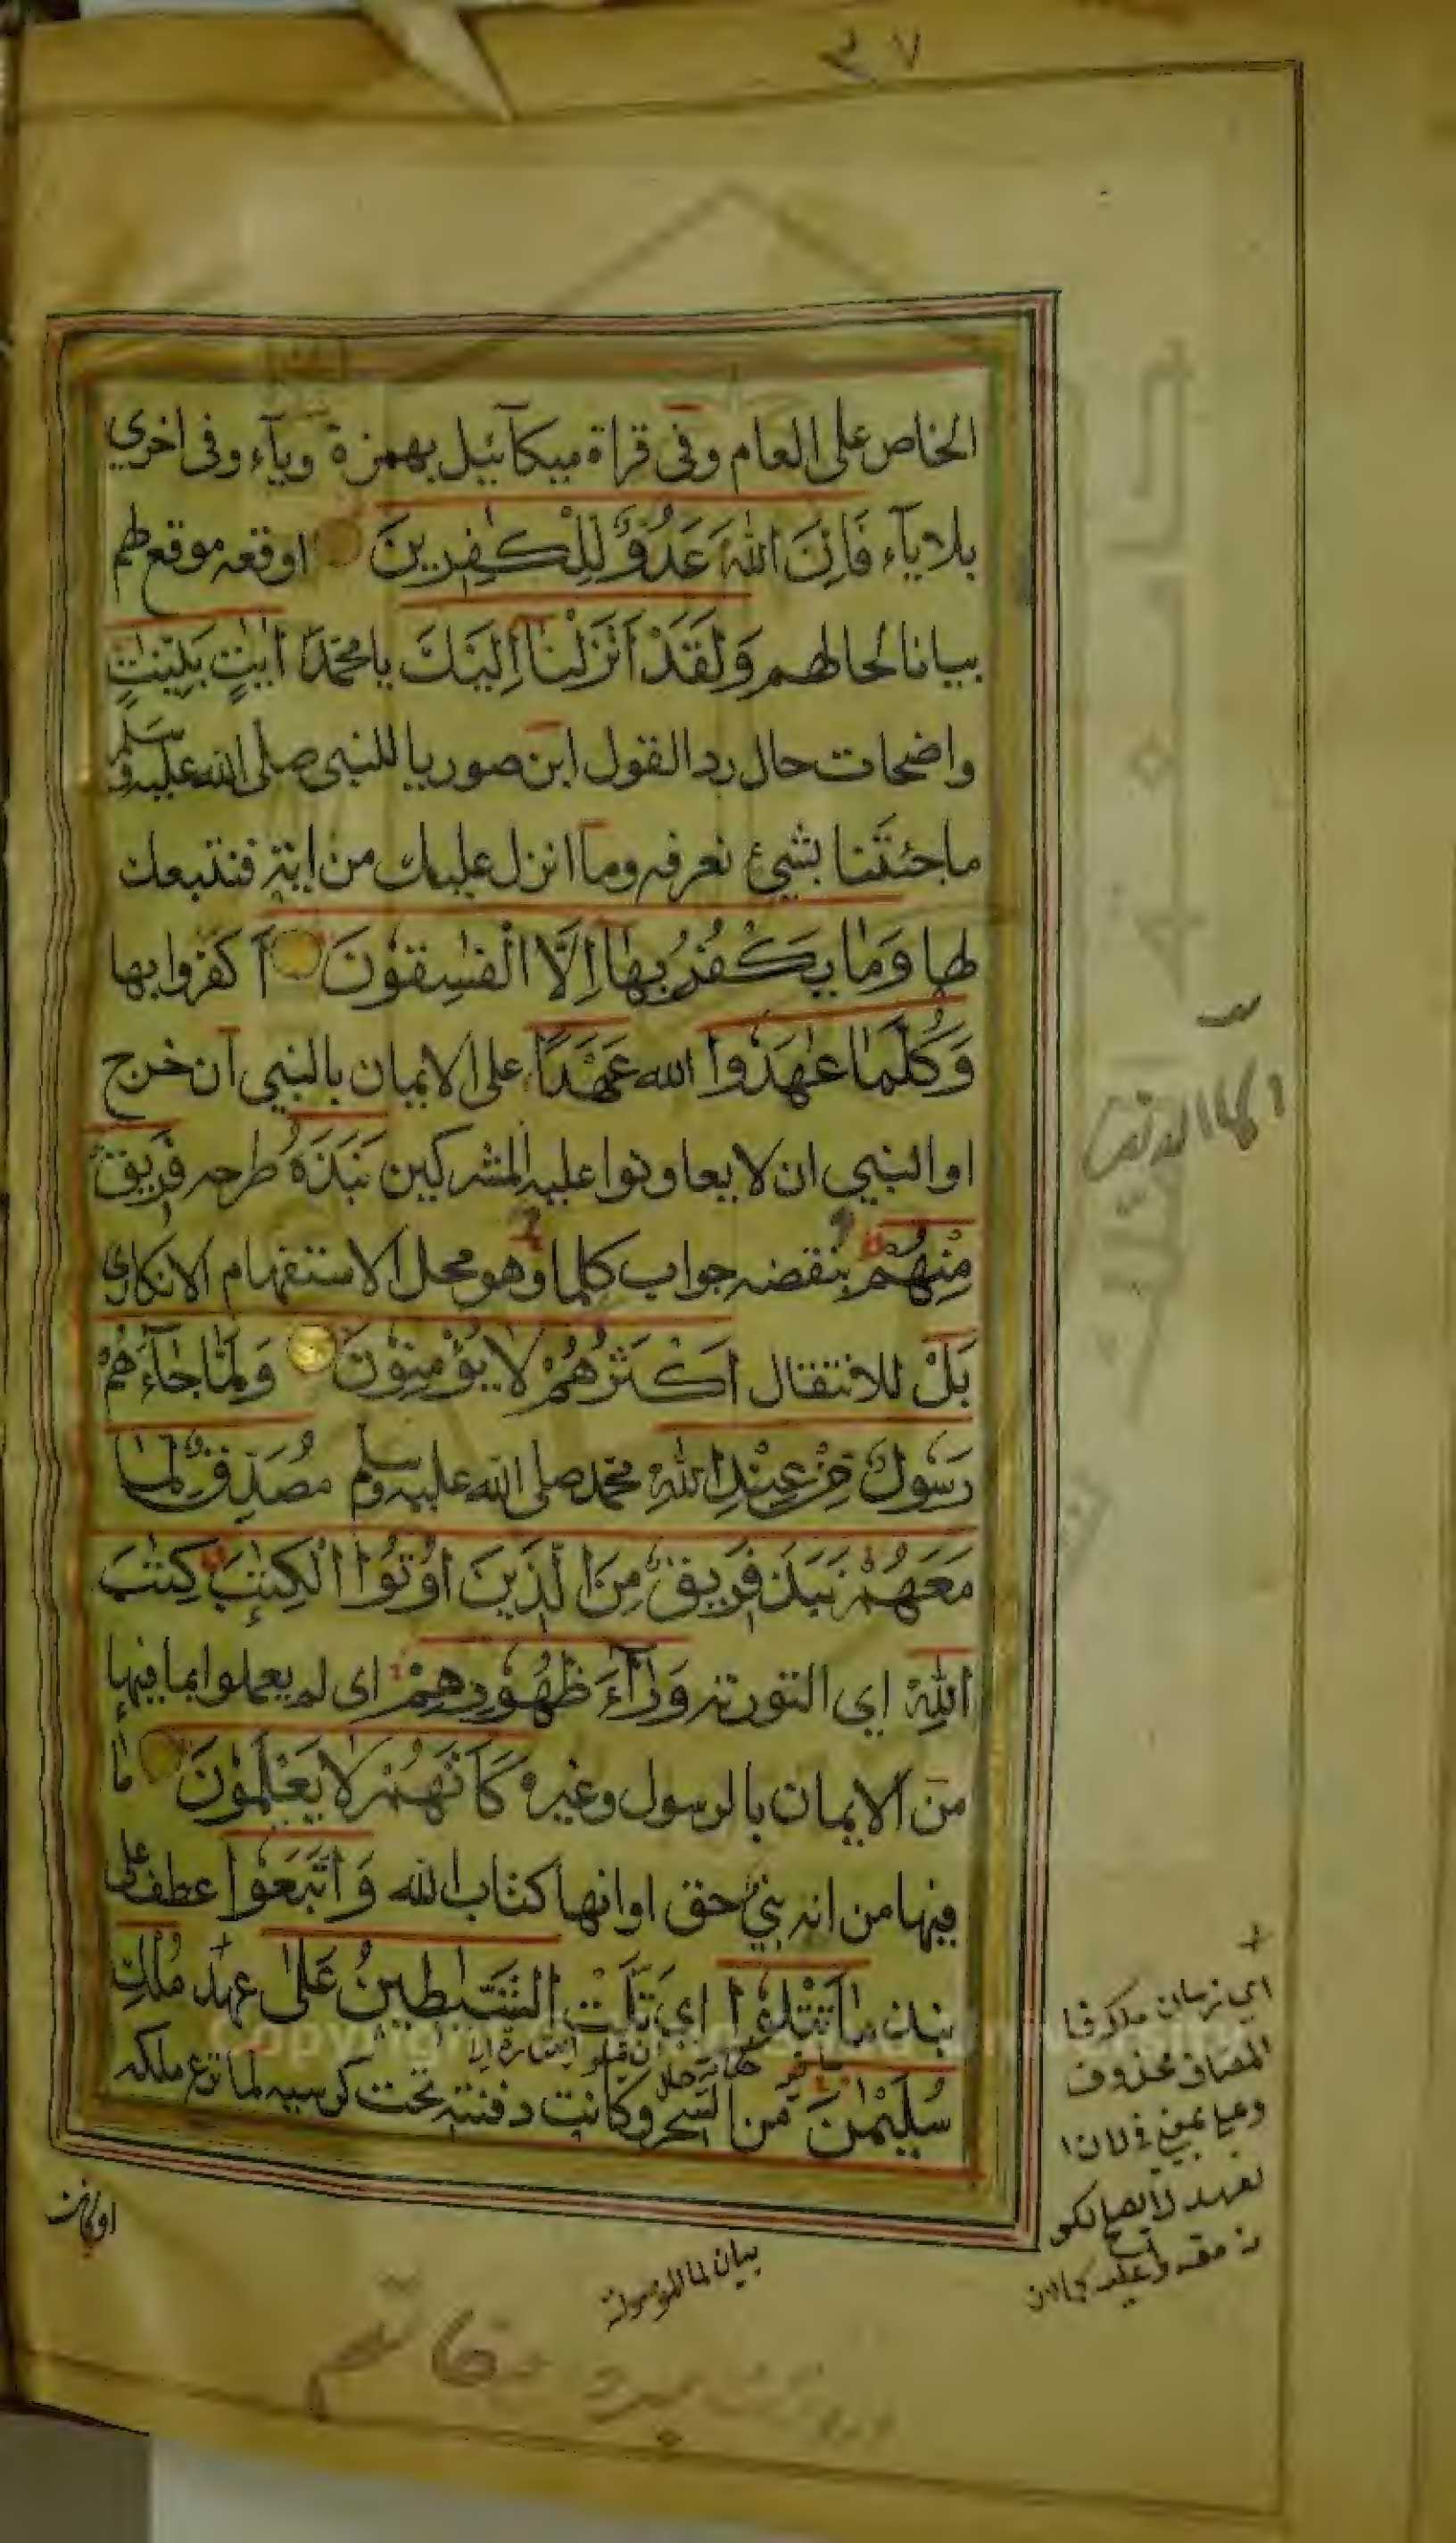 ٣٧
الخاص على العام وفى قراة ميكآئيل بهمزة وياء وفى اخري
بلا يآء فَاِنَّ اللّٰهَ عَدُوٌّ لِلْكٰفِرِينَ اوقعه موقع لهم
بيانا لحالهم وَلَقَدْ اَنْزَلْنَآ اِلَيْكَ يا محمّد اٰيٰتٍ بَيِّنٰتٍ
واضحات حال رد القول ابن صوريا للنبى صلى الله عليه وسلم
ما جئتَنا بشيئ نعرفه وما انزل عليك من اية فنتبعك
لها وَمَا يَكْفُرُ بِهَآ اِلَّا الْفٰسِقُوْنَ آ كفروا بها
وَكُلَّمَا عٰهَدُوْا الله عَهْدًا على الايمان بالنبي ان خرج
او النبي ان لا يعاونوا عليه المشركين نَبَذَهُ طرحه فَرِيقٌ
مِنْهُمْ بنقضه جواب كلما وهو محل الاستفهام الانكارى
بَلْ للانتقال اَكْثَرُهُمْ لَا يُؤْمِنُوْنَ وَلَمَّا جَآءَهُمْ
رَسُولٌ مِنْ عِنْدِ اللّٰهِ محمد صلى الله عليه وسلم مُصَدِّقٌ لِمَا
مَعَهُمْ نَبَذَ فَرِيقٌ مِنَ الَّذِينَ اُوْتُوا الْكِتٰبَ كِتٰبَ
اللّٰهِ اي التورته وَرَآءَ ظُهُوْرِهِمْ اى لم يعملوا بما فيها
من الايمان بالرسول وغيره كَاَنَّهُمْ لَا يَعْلَمُوْنَ ما
فيها من انه نبيّ حق او انها كتاب الله وَاتَّبَعُوْا عطف على
نبذ مَا تَتْلُوْا اي تَلَتْ الشَّيٰطِينُ عَلٰى عهد مُلْكِ
سُلَيْمٰنَ من السحر وكانت دفنته تحت كرسيه لما نزع ملكه
اي زمان ملكه فا
المضاف محذوف
وعلى بمعنى فى لان ا
بيان لما الموصولة
او كانت